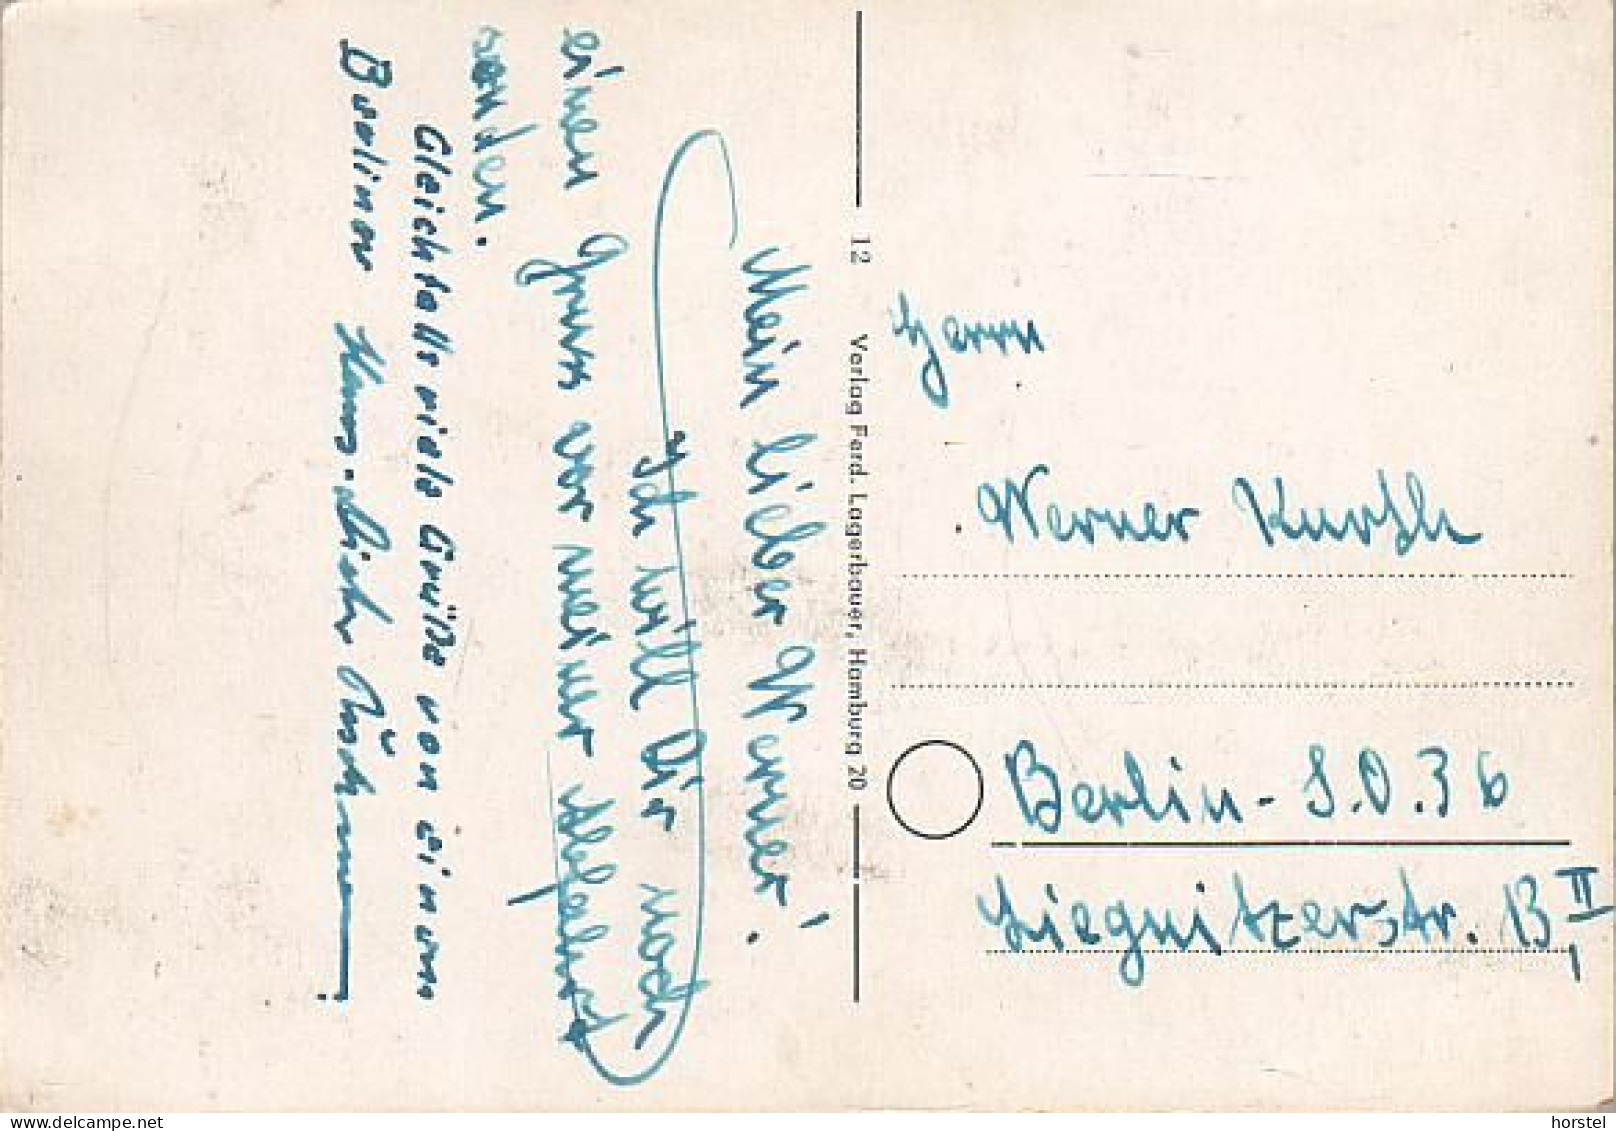 Mein lieber Werner!
Ich will Dir noch
einen Gruss vor meiner Abfahrt
senden.
Gleichfalls viele Grüße von einem
Berliner
12 Verlag Ferd. Lagerbauer, Hamburg 20
Herrn
Werner
Berlin - S.O. 36
Liegnitzerstr. 13, II
horstel